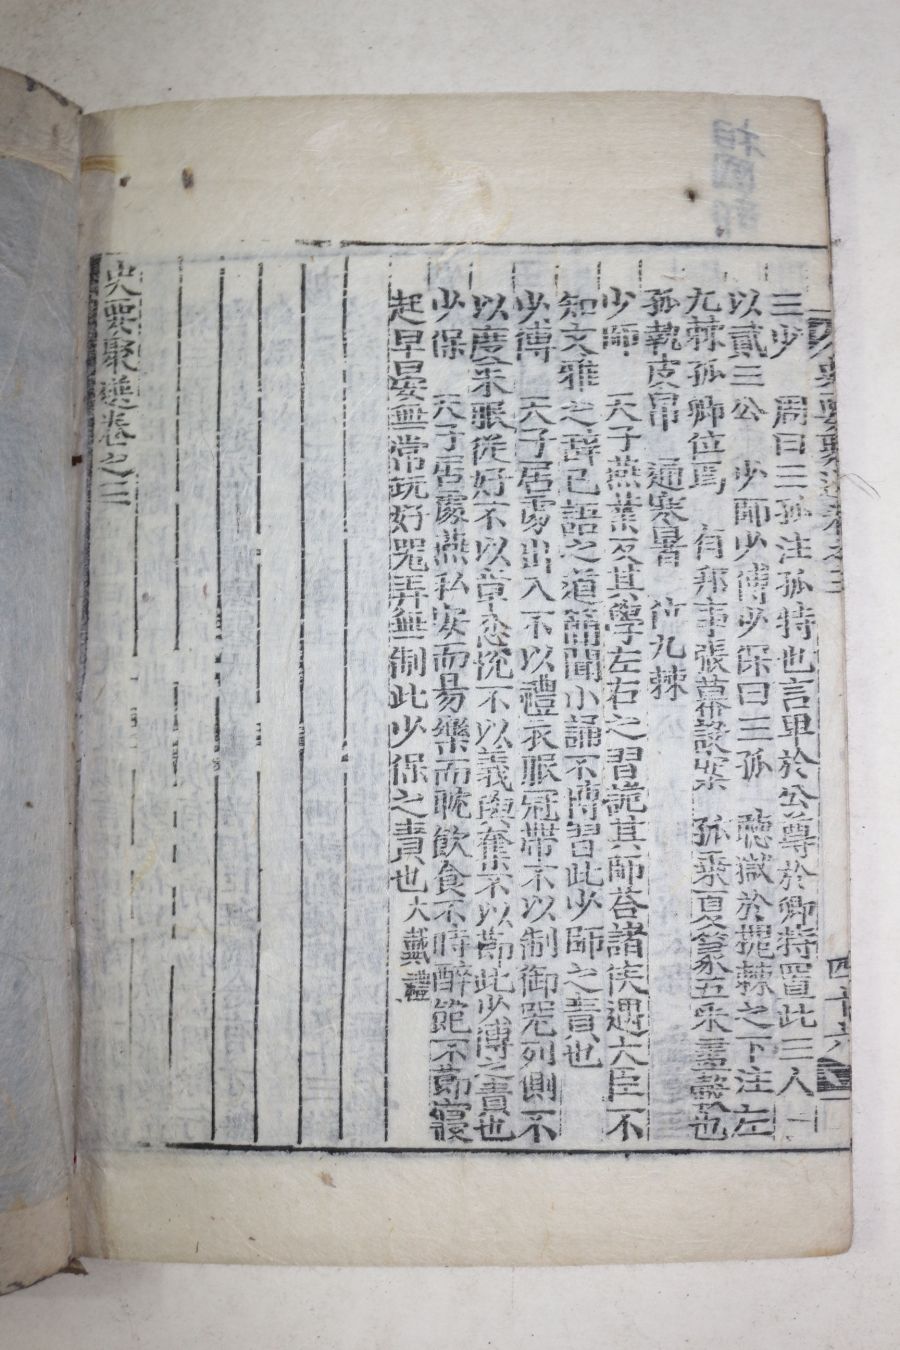 三少 周曰三孤注孤特也言卑於公尊於卿特置此三人
以貳三公 少師少傅少保曰三孤 聽獄於棘之下注左
九棘孤卿位焉 有邦事張幕設案 孤乘夏篆五采畫轂也
孤執皮帛 通寒暑 位九棘
少師 天子燕業反其學左右之習詭其師荅諸侯遇大臣不
知文雅之辭已諾之道簡聞小誦不博習此少師之責也
少傅 天子居處出入不以禮衣服冠帶不以制御器列側不
以度采服從好不以章忿悅不以義與奪不以節此少傅之責也
少保 天子居處燕私安而易樂而耽飲食不時醉飽不節寢
起早晏無常玩好器弄無制此少保之責也大戴禮
史要聚選卷之三